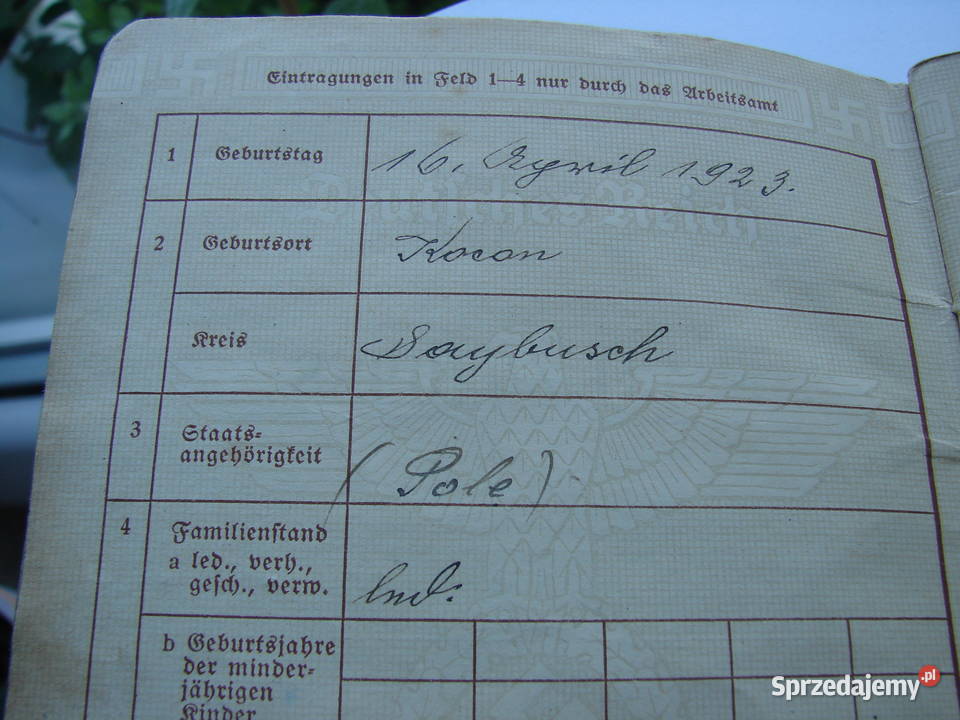 Eintragungen in Feld 1—4 nur durch das Arbeitsamt
1 Geburtstag 16. April 1923.
Deutsches Reich
2 Geburtsort Kocon
Kreis Saybusch
3 Staats-
angehörigkeit (Pole)
4 Familienstand
a led., verh.,
gesch., verw. led.
b Geburtsjahre
der minder-
jährigen
Kinder
Sprzedajemy.pl